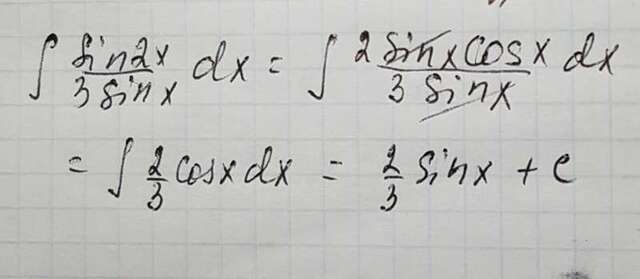 ∫ sin2x / 3 sinx dx = ∫ 2 sinx cosx / 3 sinx dx
= ∫ 2/3 cosx dx = 2/3 sinx + c